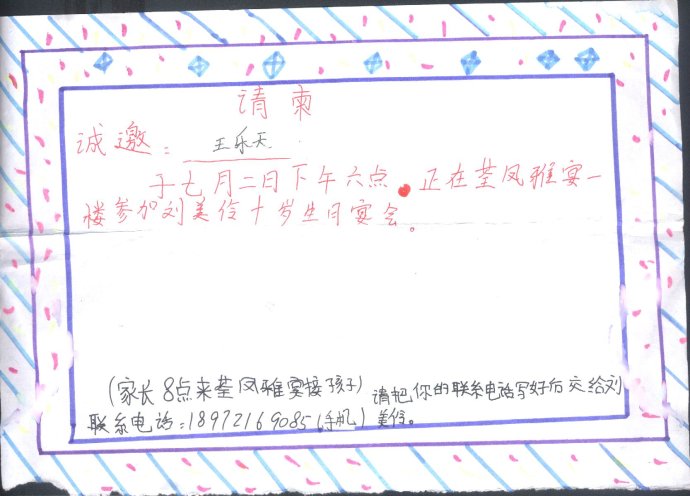 请柬
诚邀：王乐天
于七月二日下午六点，正在荃凤雅宴一
楼参加刘美伶十岁生日宴会。
(家长8点来荃凤雅宴接孩子) 请把你的联系电话写好后交给刘
联系电话:18972169085(手机) 美伶。